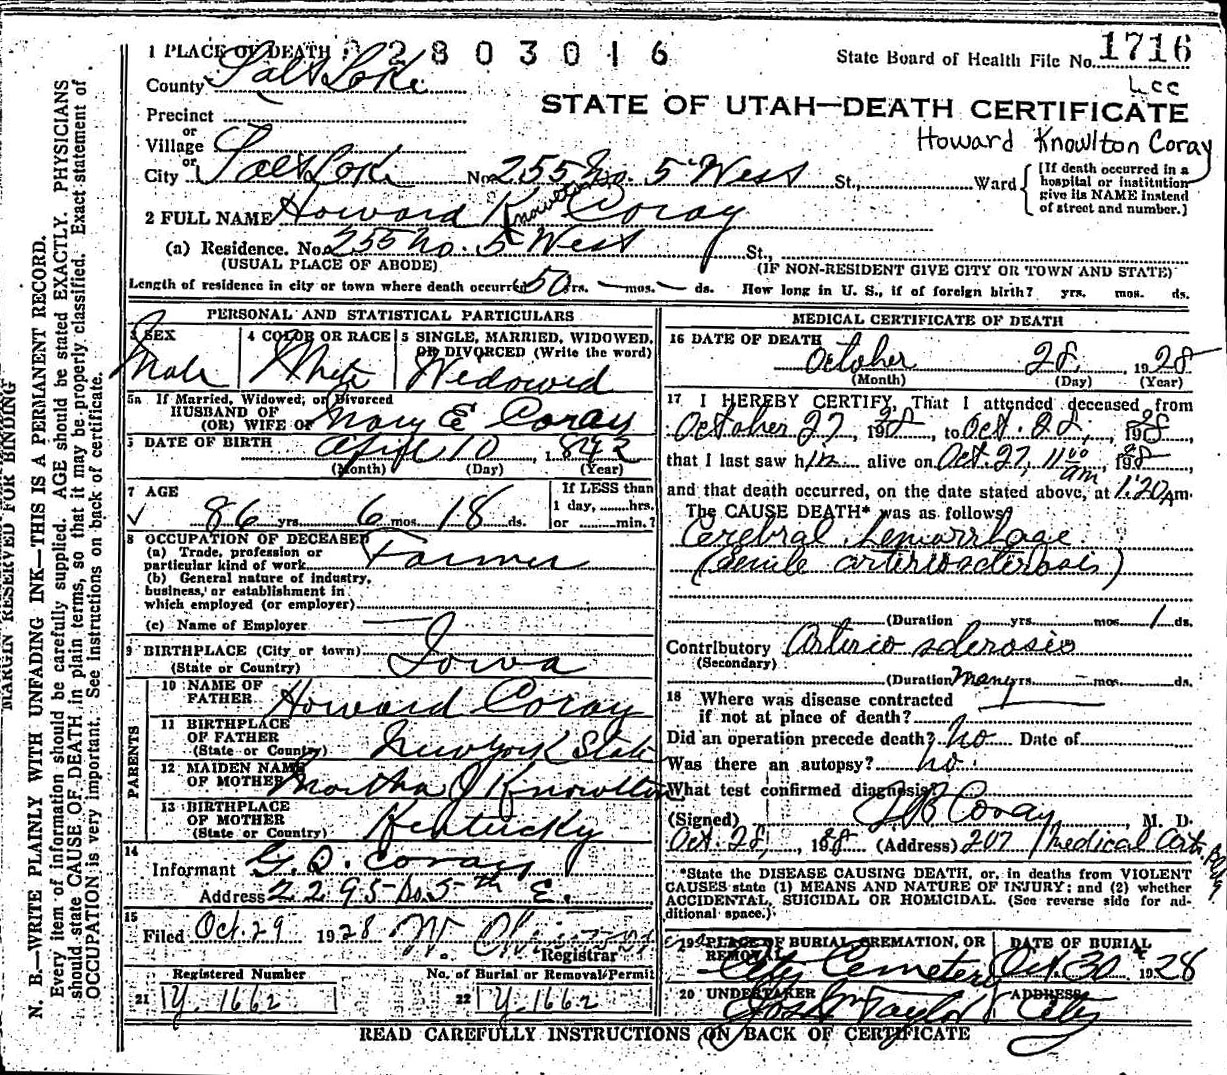 1 PLACE OF DEATH 02803016
State Board of Health File No. 1716
County Salt Lake
Lcc
STATE OF UTAH—DEATH CERTIFICATE
Precinct
or
Village
or
City Salt Lake No. 255 No. 5 West St., Ward
Howard Knowlton Coray
[If death occurred in a
hospital or institution
give its NAME instead
of street and number.]
2 FULL NAME Howard Knowlton Coray
(a) Residence. No. 255 No. 5 West St.,
(USUAL PLACE OF ABODE) (IF NON-RESIDENT GIVE CITY OR TOWN AND STATE)
Length of residence in city or town where death occurred 50 yrs. — mos. — ds. How long in U. S., if of foreign birth? yrs. mos. ds.
PERSONAL AND STATISTICAL PARTICULARS
3 SEX
Male
4 COLOR OR RACE
White
5 SINGLE, MARRIED, WIDOWED,
OR DIVORCED (Write the word)
Widowed
5a If Married, Widowed, or Divorced
HUSBAND OF
(OR) WIFE OF Mary E Coray
6 DATE OF BIRTH April 10, 1842
(Month) (Day) (Year)
7 AGE
86 yrs. 6 mos. 18 ds.
If LESS than
1 day, ......hrs.
or ......min.?
8 OCCUPATION OF DECEASED
(a) Trade, profession or
particular kind of work Farmer
(b) General nature of industry,
business, or establishment in
which employed (or employer)
(c) Name of Employer —
9 BIRTHPLACE (City or town)
(State or Country) Iowa
PARENTS
10 NAME OF
FATHER Howard Coray
11 BIRTHPLACE
OF FATHER
(State or Country) New York State
12 MAIDEN NAME
OF MOTHER Martha J Knowlton
13 BIRTHPLACE
OF MOTHER
(State or Country) Kentucky
14
Informant G. Q. Coray
Address 2295 So. 5th E.
15
Filed Oct. 29 1928 W.
Registrar
Registered Number No. of Burial or Removal Permit
21 Y. 1662 22 Y. 1662
MEDICAL CERTIFICATE OF DEATH
16 DATE OF DEATH
October 28, 1928
(Month) (Day) (Year)
17 I HEREBY CERTIFY, That I attended deceased from
October 27, 1928, to Oct. 28, 1928
that I last saw him alive on Oct. 27, 11 00 am, 1928
and that death occurred, on the date stated above, at 1:20 Am.
The CAUSE DEATH* was as follows:
Cerebral hemorrhage
(senile arteriosclerosis)
(Duration yrs. mos. 1 ds.
Contributory Arterio sclerosis
(Secondary)
(Duration Many yrs. mos. ds.
18 Where was disease contracted
if not at place of death? —
Did an operation precede death? no Date of
Was there an autopsy? no.
What test confirmed diagnosis?
(Signed) Coray, M. D.
Oct. 28, 1928 (Address) 207 Medical Arts Bldg
*State the DISEASE CAUSING DEATH, or, in deaths from VIOLENT
CAUSES state (1) MEANS AND NATURE OF INJURY; and (2) whether
ACCIDENTAL, SUICIDAL OR HOMICIDAL. (See reverse side for ad-
ditional space.)
19 PLACE OF BURIAL, CREMATION, OR
REMOVAL
City Cemetery
DATE OF BURIAL
Oct 30 1928
20 UNDERTAKER
Jos. Wm Taylor
ADDRESS
City
READ CAREFULLY INSTRUCTIONS ON BACK OF CERTIFICATE
MARGIN RESERVED FOR BINDING
N. B.—WRITE PLAINLY WITH UNFADING INK—THIS IS A PERMANENT RECORD.
Every item of information should be carefully supplied. AGE should be stated EXACTLY. PHYSICIANS
should state CAUSE OF DEATH in plain terms, so that it may be properly classified. Exact statement of
OCCUPATION is very important. See instructions on back of certificate.